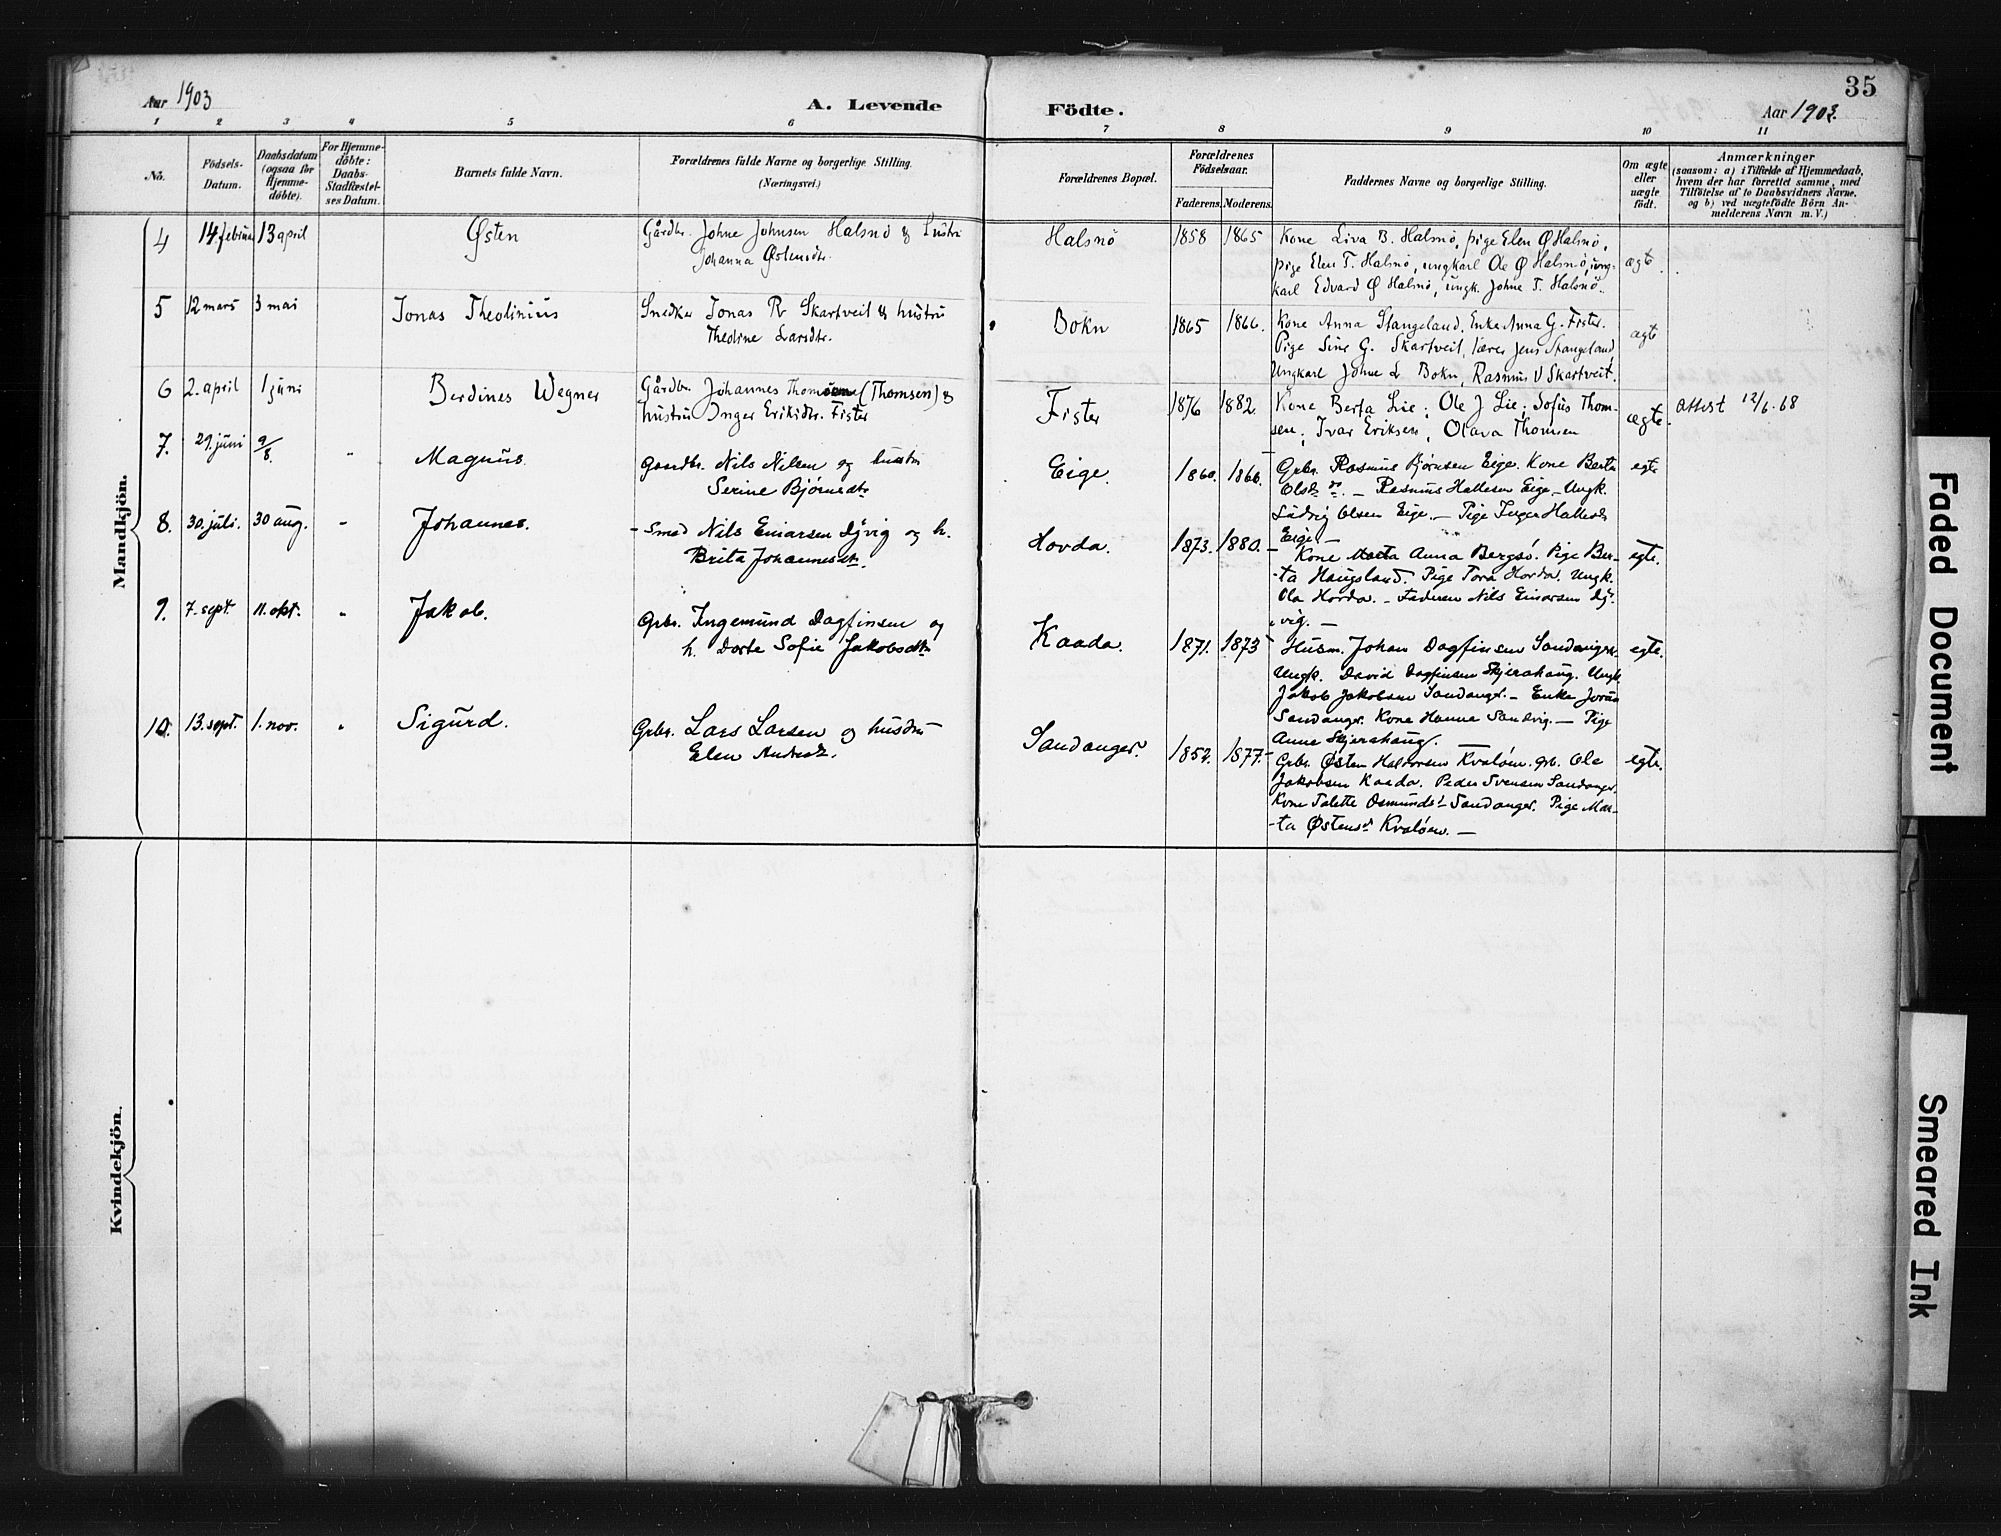 35
Aar 1903
A. Levende
Födte.
Aar 1903.
1 2 3 4 5 6 7 8 9 10 11
No.
Födsels-Datum.
Daabsdatum (ogsaa for Hjemmedöbte).
For Hjemmedöbte: Daabs-Stadfæstelses Datum.
Barnets fulde Navn.
Forældrenes fulde Navne og borgerlige Stilling.
(Næringsvei.)
Forældrenes Bopæl.
Forældrenes Födselsaar.
Faderens. Moderens.
Faddernes Navne og borgerlige Stilling.
Om ægte eller uægte födt.
Anmærkninger
(saasom: a) i Tilfælde af Hjemmedaab,
hvem der har forrettet samme, med
Tilföielse af to Daabsvidners Navne.
og b) ved uægtefödte Börn Anmelderens Navn m. V.)
Mandkjön.
4 14 februar 13 april Østen
Gårdbr. Johne Johnsen Halsnö & hustru
Johanna Østensdtr.
Halsnö 1858 1865
Kone Liva B. Halsnö, pige Elen Ø Halsnö,
pige Elen T. Halsnö, ungkarl Ole Ø Halsnö, ung-
karl Edvard Ø Halsnö, ungk. Johne T. Halsnö.
ægte
5 12 mars 3 mai Jonas Theolinius
Snedker Jonas R Skartveit & hustru
Theoline Larsdtr.
Bokn 1865 1866.
Kone Anna Stangeland. Enke Anna G. Fister.
Pige Sine G. Skartveit, lærer Jens Stangeland,
Ungkarl Johne L Bokn, Rasmus V Skartveit.
ægte
6 2. april 1 juni Berdines Wegner
Gårdbr. Johannes (Thomsen) &
hustru Inger Eriksdtr. Fister
Fister 1876 1882.
Kone Berta Lie; Ole J Lie; Sofus Thom-
sen; Ivar Eriksen, Olava Thomsen
ægte.
Attest 12/6.68
7. 29. juni 9/8. " Magnus.
Gaardbr. Nils Nilsen og hustru
Serine Bjørnsdtr
Eige. 1860. 1866.
Grbr. Rasmus Bjørnsen Eige. Kone Berta
Olsdtr. – Rasmus Hallesen Eige – Ungk.
Ludvig Olsen Eige. – Pige Inger Hallesdtr
Eige. –
egte
8. 30. juli. 30 aug. " Johannes.
– Smed Nils Einarsen Djvig og h.
Brita Johannesdtr.
Hovda. 1873. 1880.
Kone Anna Bergsö. Pige Ber-
-ta Haugsland. Pige Tora Hovda. Ungk.
Ola Hovda. – Faderen Nils Einarsen Dj-
vig. –
egte.
9. 7. sept. 11. okt. " Jakob.
Grbr. Ingemund Dagfinsen og
h. Dorte Sofie Jakobsdtr
Kaada. 1871. 1873
Husm. Johan Dagfinsen Sandanger.
Ungk. David Dagfinsen Skjerahaug. Ungk.
Jakob Jakobsen Sandanger. – Enke Jorun
Sandanger. Kone Hanna Sandvig. – Pige
Anna Skjerahaug.
egte.
10. 13. sept. 1. nov. " Sigurd.
Grbr. Lars Larsen og hustru
Elen Andrsdtr.
Sandanger. 1852. 1877.
Grbr. Østen Halvorsen Kvaløen. grb. Ole
Jakobsen Kaada. Peder Svensen Sandanger.
Kone Talette Osmundsdt Sandanger. Pige Mar-
-ta Østensdt Kvaløen. –
egte.
Kvindekjön.
Faded Document
Smeared Ink